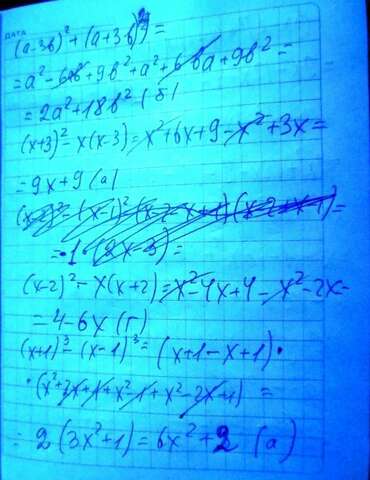 ДАТА
(a-3b)² + (a+3b)² =
= a² - 6ab + 9b² + a² + 6ba + 9b² =
= 2a² + 18b² (б)
(x+3)² - x(x-3) = x² + 6x + 9 - x² + 3x =
= 9x + 9 (а)
= 1 (2x-3) =
(x-2)² - x(x+2) = x² - 4x + 4 - x² - 2x =
= 4 - 6x (г)
(x+1)³ - (x-1)³ = (x+1-x+1) ·
· (x² + 2x + 1 + x² - 1 + x² - 2x + 1) =
= 2(3x² + 1) = 6x² + 2 (а)